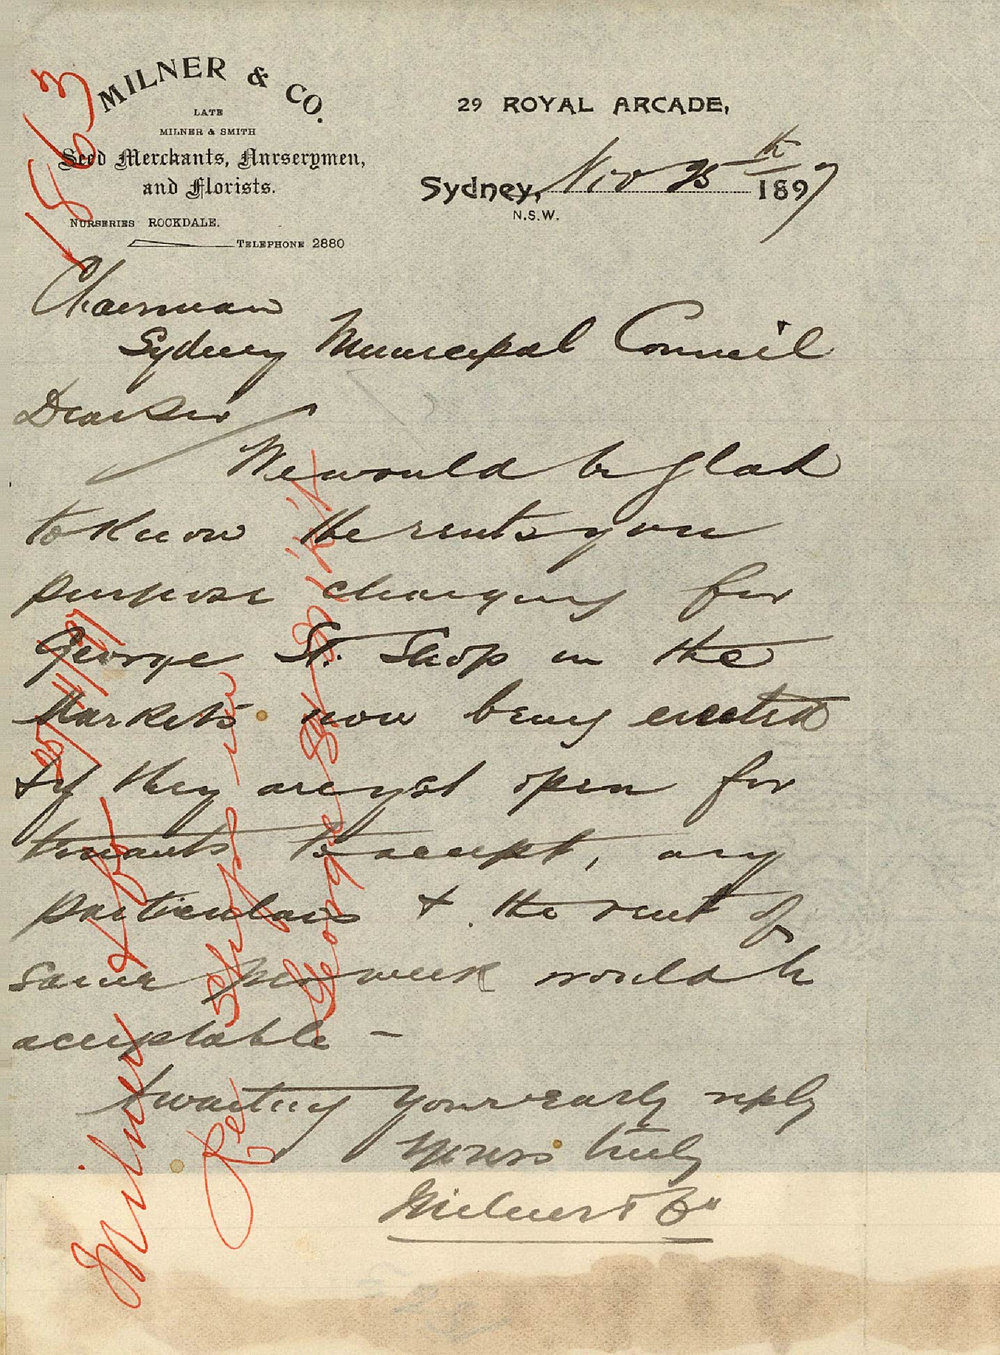 MILNER & CO.
LATE
MILNER & SMITH
Seed Merchants, Nurserymen,
and Florists.
NURSERIES ROCKDALE.
TELEPHONE 2880
29 ROYAL ARCADE,
Sydney, Nov 25th 1897
N.S.W.
1863
Chairman
Sydney Municipal Council
Dear Sir
We would be glad
to know the rents you
purpose charging for
George St. Shop in the
Markets now being erected
& if they are yet open for
tenants to accept, any
particulars & the rent of
same per week would be
acceptable –
Awaiting your early reply
Yours truly
Milner & Co
25/11/97
Milner & Co
Re shops in
George St